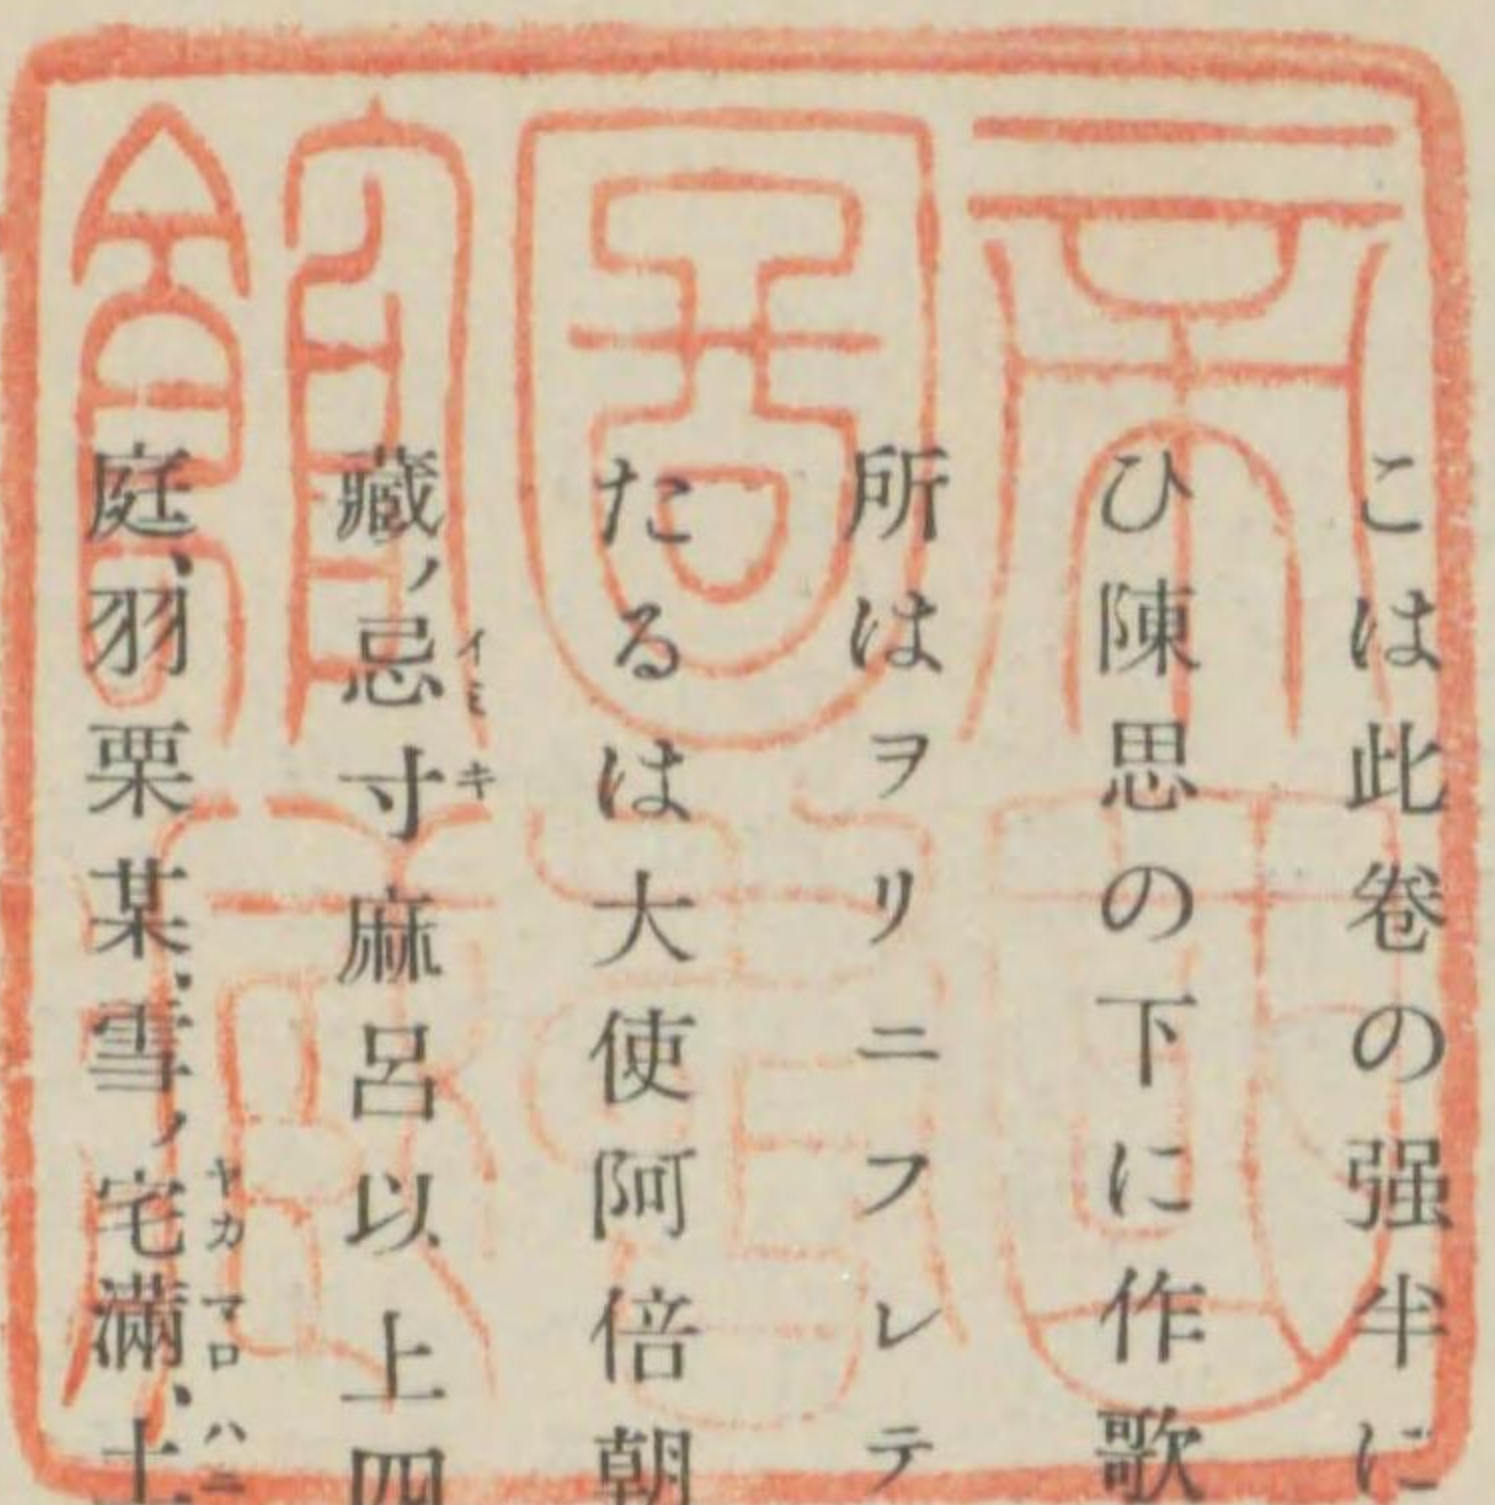 こは此卷の强半に
ひ陳思の下に作歌
所はヲリニフレテ
たるは大使阿倍朝
藏ノ忌寸麻呂以上四
イミキ
庭、羽栗某、雪ノ宅滿、土
ヤカマロ ハニ
帝圖
館